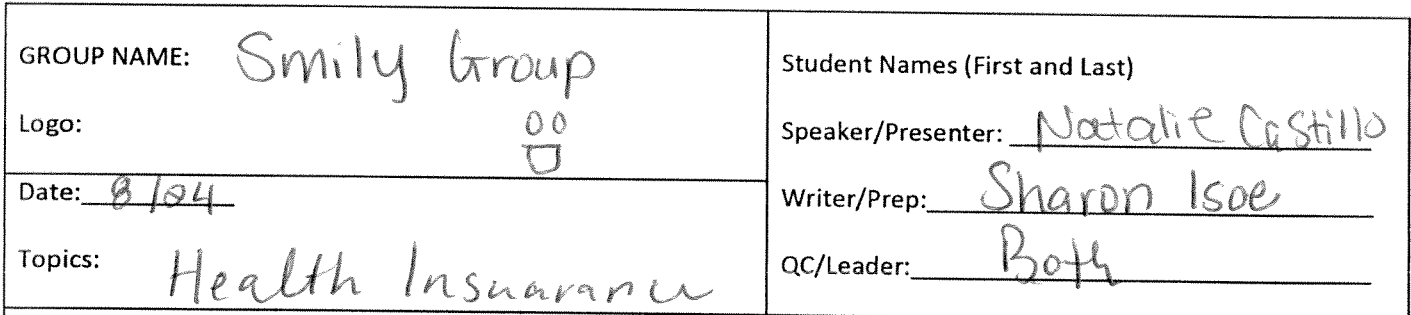 GROUP NAME: Smily Group
Logo:
Date: 8/24
Topics: Health Insuarance
Student Names (First and Last)
Speaker/Presenter: Natalie Castillo
Writer/Prep: Sharon Isoe
QC/Leader: Both